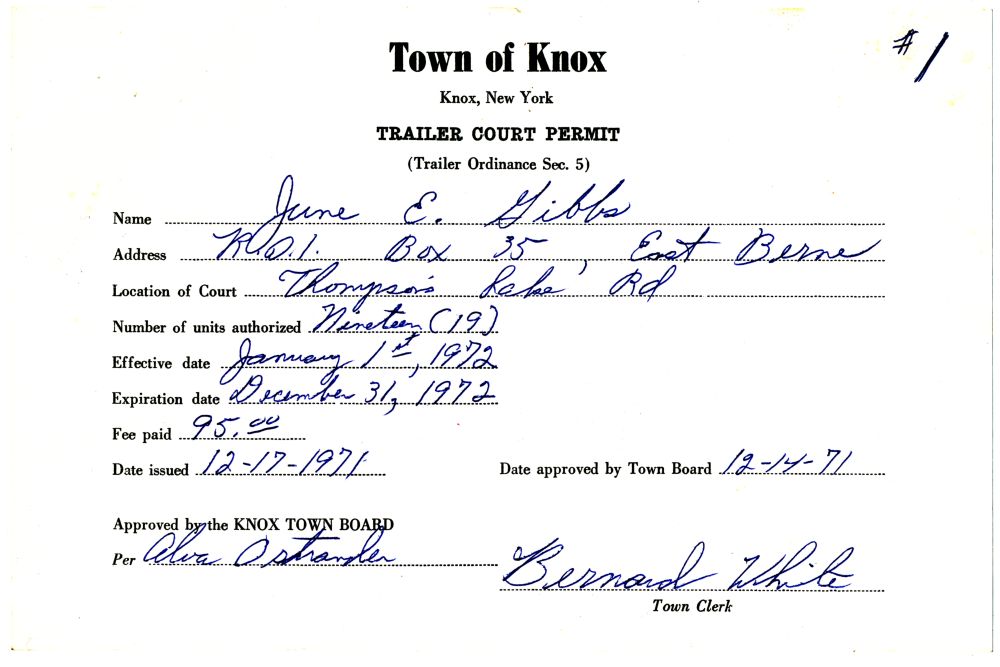 # 1
Town of Knox
Knox, New York
TRAILER COURT PERMIT
(Trailer Ordinance Sec. 5)
Name June E. Gibbs
Address R.D.1. Box 35, East Berne
Location of Court Thompson's Lake Rd
Number of units authorized Nineteen (19)
Effective date January 1st, 1972
Expiration date December 31, 1972
Fee paid 95.00
Date issued 12-17-1971 Date approved by Town Board 12-14-71
Approved by the KNOX TOWN BOARD
Per Alva Ostrander
Bernard White
Town Clerk